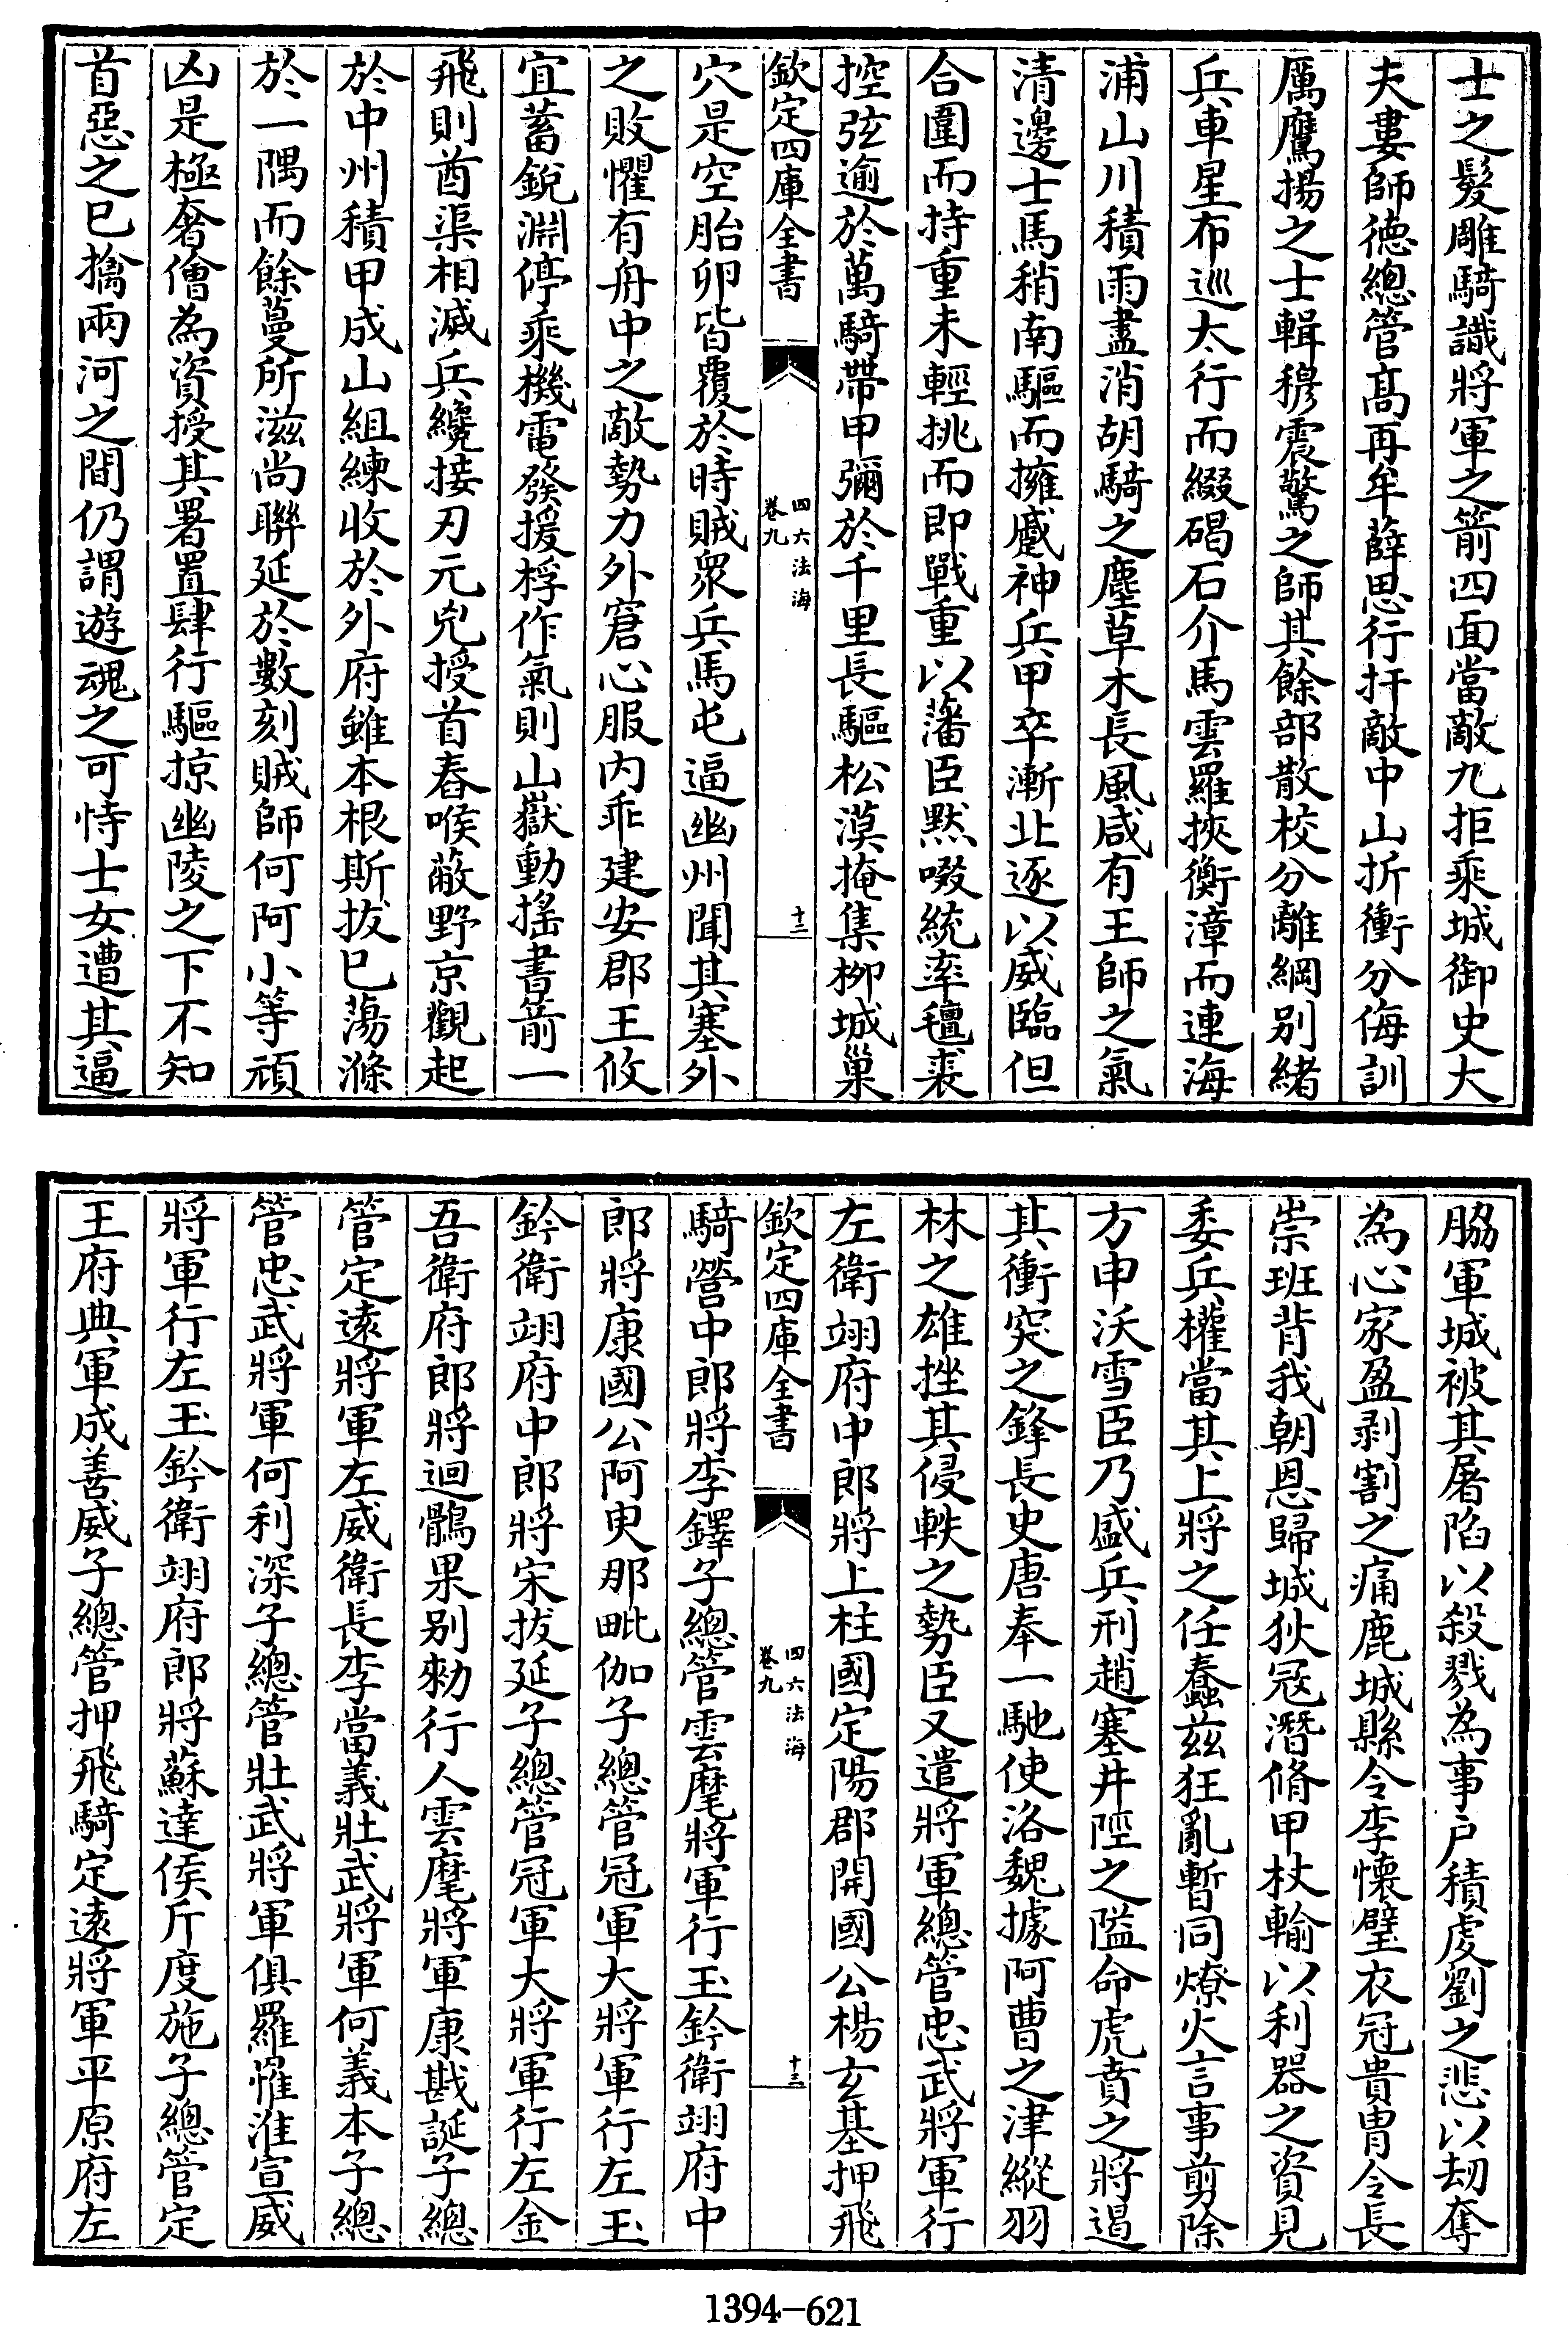 士之髮雕騎識將軍之箭四面當敵九拒乘城御史大
夫婁師徳總管髙再牟薛思行扞敵中山折衝分侮訓
厲鷹揚之士輯穆震驚之師其餘部散校分離綱别緒
兵車星布巡太行而綴碣石介馬雲羅挾衡漳而連海
浦山川積雨盡消胡騎之塵草木長風咸有王師之氣
清邊士馬稍南驅而擁蹙神兵甲卒漸北逐以威臨但
合圍而持重未輕挑而即戰重以藩臣黙啜統率氊裘
控弦逾於萬騎帶甲彌於千里長驅松漠掩集柳城巢
欽定四庫全書
四六法海
卷九
十二
穴是空胎卵皆覆於時賊衆兵馬屯逼幽州聞其塞外
之敗懼有舟中之敵勢力外窘心服内乖建安郡王攸
宜蓄銳淵停乘機電發援桴作氣則山嶽動搖書箭一
飛則酋渠相滅兵纔接刃元兇授首舂喉蔽野京觀起
於中州積甲成山組練收於外府雖本根斯拔已蕩滌
於一隅而餘蔓所滋尚聨延於數刻賊師何阿小等頑
凶是極奢僭為資授其署置肆行驅掠幽陵之下不知
首惡之已擒兩河之間仍謂遊魂之可恃士女遭其逼
脇軍城被其屠陷以殺戮為事户積虔劉之悲以刼奪
為心家盈剥割之痛鹿城縣令李懐璧衣冠貴胄令長
崇班背我朝恩歸城狄冦潛脩甲杖輸以利器之資見
委兵權當其上將之任蠢兹狂亂暫同燎火言事剪除
方申沃雪臣乃盛兵刑趙塞井陘之隘命虎賁之將遏
其衝突之鋒長史唐奉一馳使洛魏據阿曹之津縱羽
林之雄挫其侵軼之勢臣又遣將軍總管忠武將軍行
左衛翊府中郎將上柱國定陽郡開國公楊玄基押飛
欽定四庫全書
四六法海
卷九
十三
騎營中郎將李鐸子總管雲麾將軍行玉鈐衛翊府中
郎將康國公阿史那毗伽子總管冠軍大將軍行左玉
鈐衛翊府中郎將宋拔延子總管冠軍大將軍行左金
吾衛府郎將迴鶻果别勑行人雲麾將軍康戡誕子總
管定遠將軍左威衛長李當義壯武將軍何義本子總
管忠武將軍何利深子總管壯武將軍俱羅惟淮宣威
將軍行左玉鈐衛翊府郎將蘇達俟斤度施子總管定
王府典軍成善威子總管押飛騎定遠將軍平原府左
1394-621